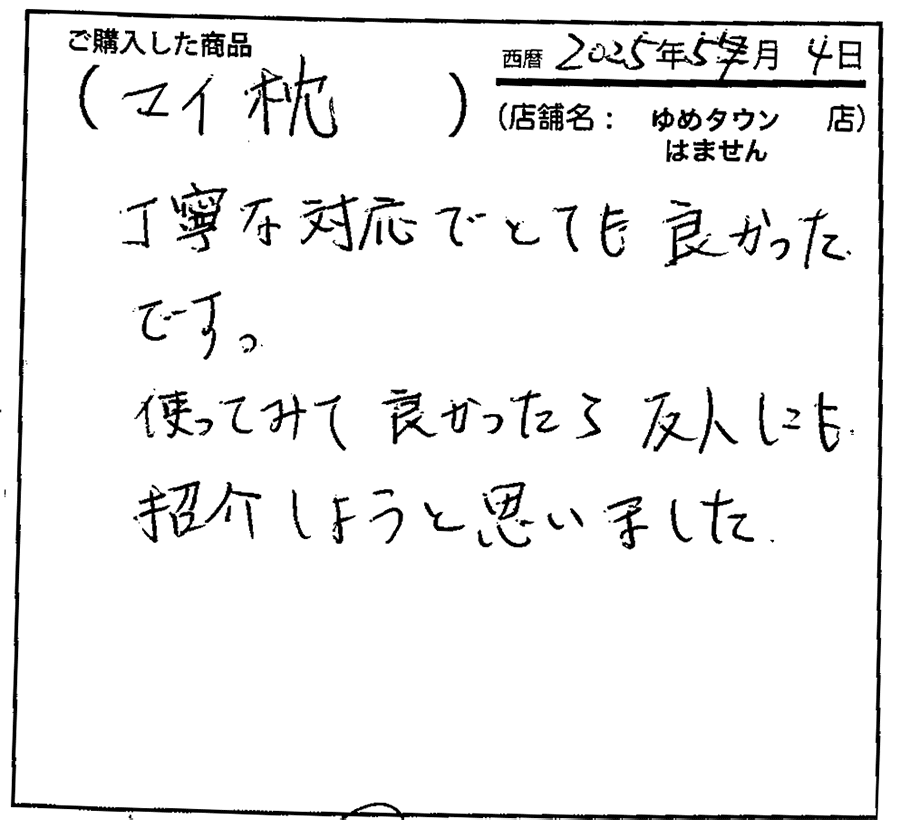 ご購入した商品
西暦 2025年5月 4日
(マイ枕 )
(店舗名: ゆめタウン 店)
はません
丁寧な対応でとても良かった
です。
使ってみて良かったら友人にも
紹介しようと思いました